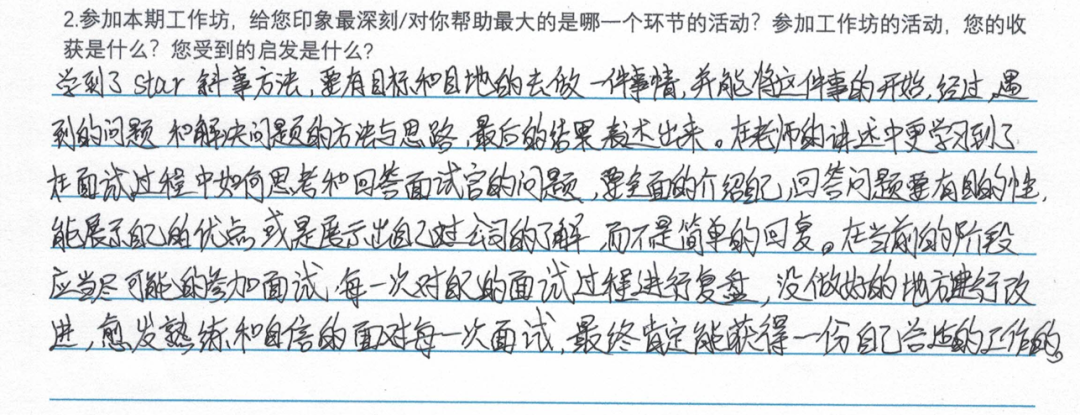 2.参加本期工作坊，给您印象最深刻/对你帮助最大的是哪一个环节的活动？参加工作坊的活动，您的收
获是什么？您受到的启发是什么？
学到了 star 叙事方法，要有目标和目地的去做一件事情，并能将这件事的开始，经过，遇
到的问题 和解决问题的方法与思路，最后的结果表述出来。在老师的讲述中更学习到了
在面试过程中如何思考和回答面试官的问题，要全面的介绍自己，回答问题要有目的性，
能展示自己的优点或是展示出自己对公司的了解，而不是简单的回复。在当前的阶段
应当尽可能的参加面试，每一次对自己的面试过程进行复盘，没做好的地方进行改
进，愈发熟练和自信的面对每一次面试，最终肯定能获得一份自己合适的工作的。